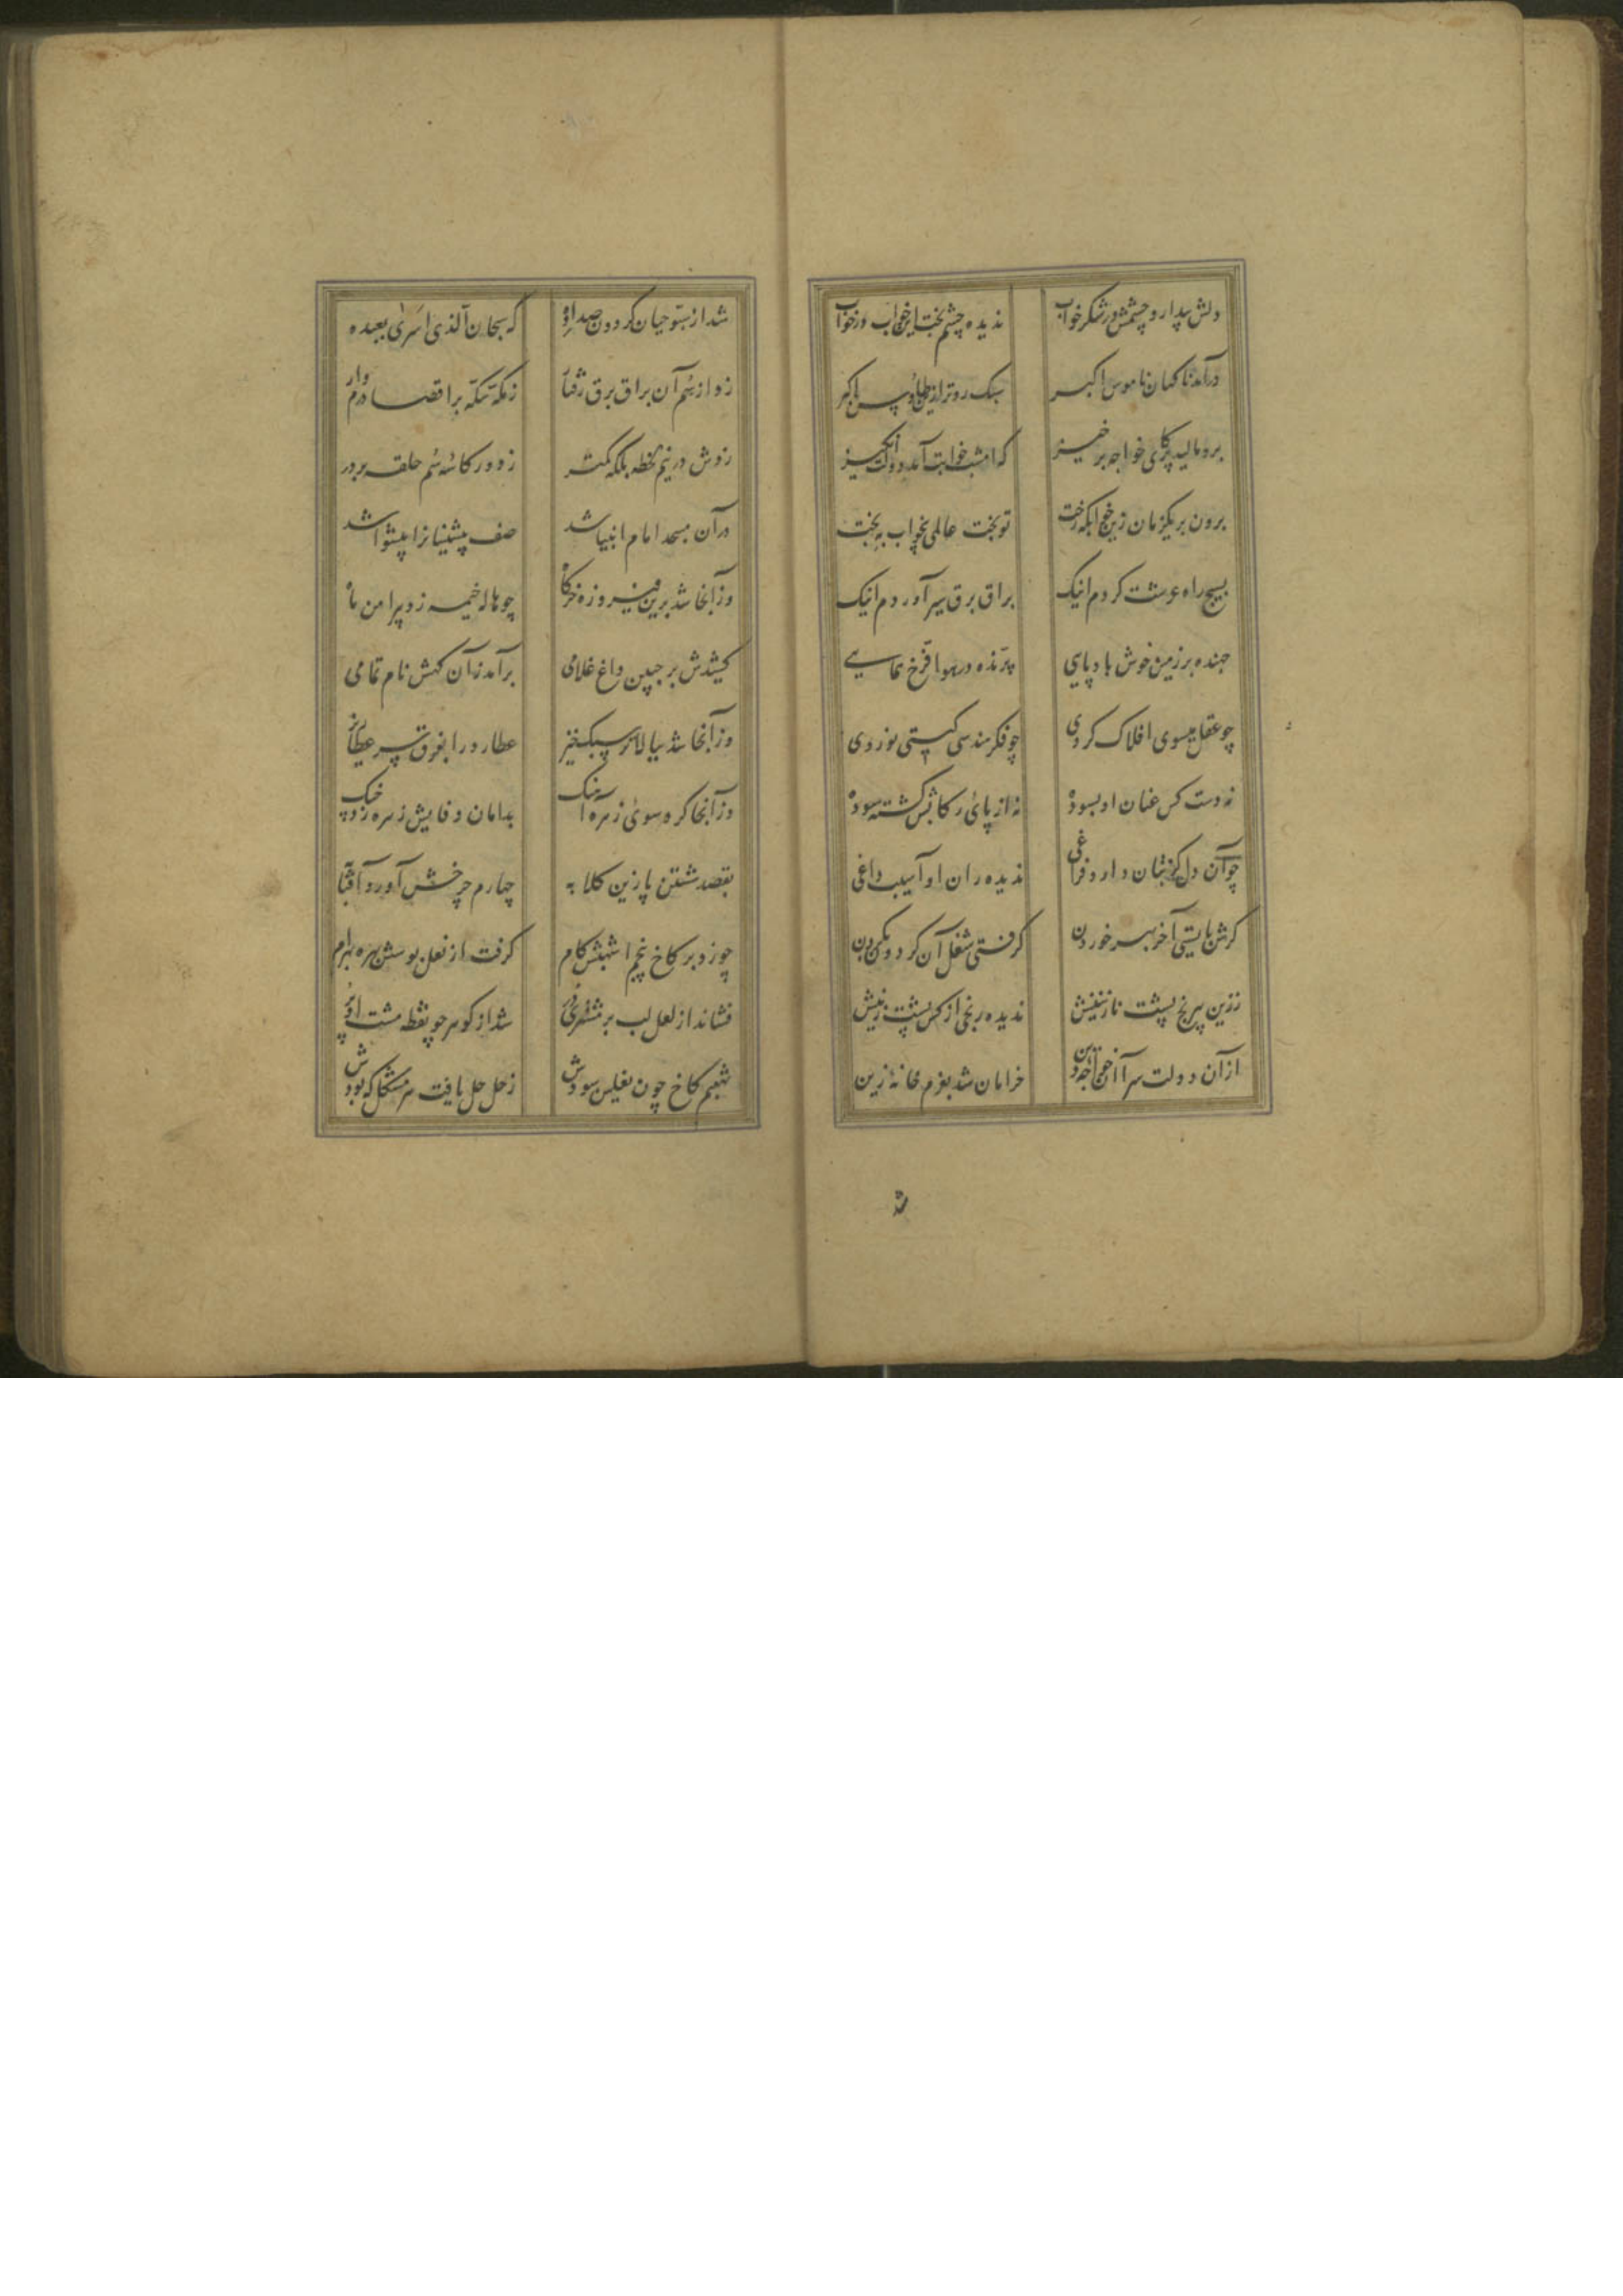 دلش بیدار و چشمش در شکر خواب ندیده چشم بخت این خواب در خواب
درآمد ناکهان ناموس اکبر سبک روتر ازین طاوس اخضر
برو مالید پر کای خواجه برخیز که امشب خوابت آمد دولت انکیز
برون بر یکزمان زین خوابکه رخت تو بخت عالمی بخواب به بخت
بسیج راه عرشت کردم اینک براق برق سیر آوردم اینک
جهنده بر زمین خوش بادپایی پرنده در هوا فرخ همایی
چو عقل بسوی افلاک کردی چو فکر هندسی کیتی نوردی
نه دست کس عنان او بسوده نه از پائی رکابش کشته سوده
چو آن دل کز بتان دارد فراغی ندیده ران او آسیب داغی
کرش بایستی آخر بهر خوردن کرفتی شغل آن کردون بکردن
ززین بیرنج پشت نازنینش ندیده رنجی از کس پشت زینش
ازآن دولت سرا آن خواجه دین خرامان شد بعزم خانهٔ زین
شد
شد از سبوحیان کردون صدا ده که سبحان الذی اسری بعبده
زد از سم آن براق برق رفتار ز مکه سکه بر اقصا درم وار
زدش در نیم لحظه بلکه کمتر ز دور کاسهٔ سم حلقه بر در
در آن مسجد امام انبیا شد صف پیشینیانرا پیشوا شد
وزآنجا شد برین فیروزه خرکاه چو هاله خیمه زد پیرامن ماه
کشیدش بر جبین داغ غلامی برآمد زآن کهش نام تمامی
وزآنجا شد ببالاتر سبک خیز عطارد را بفرق سر عطا ریز
وزآنجا کرد سوی زهره آهنک بدامان وفایش زهره زد چنک
بقصد شستن پا زین کلابه چهارم چرخش آورد آفتابه
چو زد بر کاخ پنجم اشهبش کام کرفت از نعل بوسش بهره بهرام
فشاند از لعل لب بر مشتری در شد از کوهر چو نقطه مشت او پر
شهبم کاخ چون نعلین سودش زحل حل یافت هر مشکل که بودش